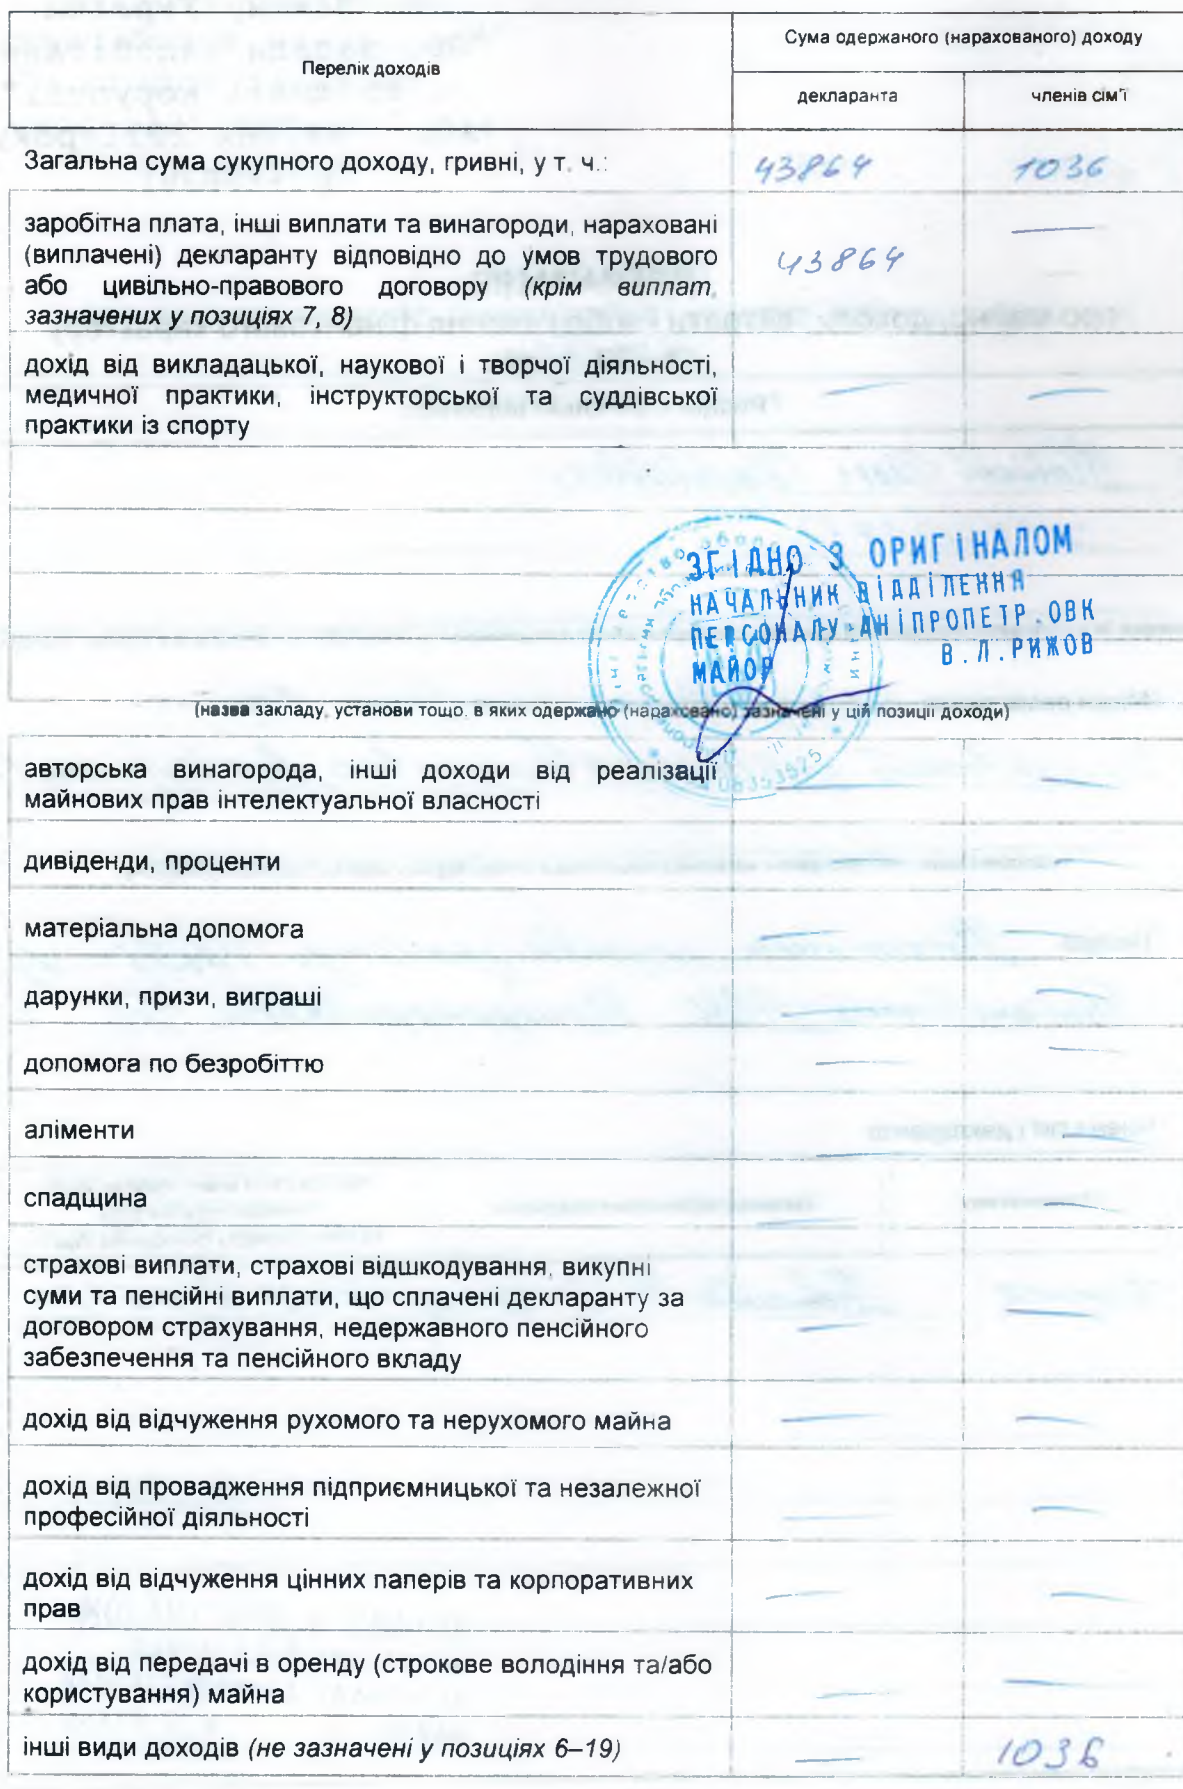 Перелік доходів
Сума одержаного (нарахованого) доходу
декларанта
членів сім'ї
Загальна сума сукупного доходу, гривні, у т. ч.: 43864 1036
заробітна плата, інші виплати та винагороди, нараховані
(виплачені) декларанту відповідно до умов трудового
або цивільно-правового договору (крім виплат, 43864 —
зазначених у позиціях 7, 8)
дохід від викладацької, наукової і творчої діяльності,
медичної практики, інструкторської та суддівської — —
практики із спорту
ЗГІДНО З ОРИГІНАЛОМ
НАЧАЛЬНИК ВІДДІЛЕННЯ
ПЕРСОНАЛУ ДНІПРОПЕТР.ОВК
МАЙОР В.Л.РИЖОВ
(назва закладу, установи тощо, в яких одержано (нараховано) зазначені у цій позиції доходи)
авторська винагорода, інші доходи від реалізації
майнових прав інтелектуальної власності — —
дивіденди, проценти — —
матеріальна допомога — —
дарунки, призи, виграші — —
допомога по безробіттю — —
аліменти — —
спадщина — —
страхові виплати, страхові відшкодування, викупні
суми та пенсійні виплати, що сплачені декларанту за
договором страхування, недержавного пенсійного — —
забезпечення та пенсійного вкладу
дохід від відчуження рухомого та нерухомого майна — —
дохід від провадження підприємницької та незалежної
професійної діяльності — —
дохід від відчуження цінних паперів та корпоративних
прав — —
дохід від передачі в оренду (строкове володіння та/або
користування) майна — —
інші види доходів (не зазначені у позиціях 6–19) — 1036